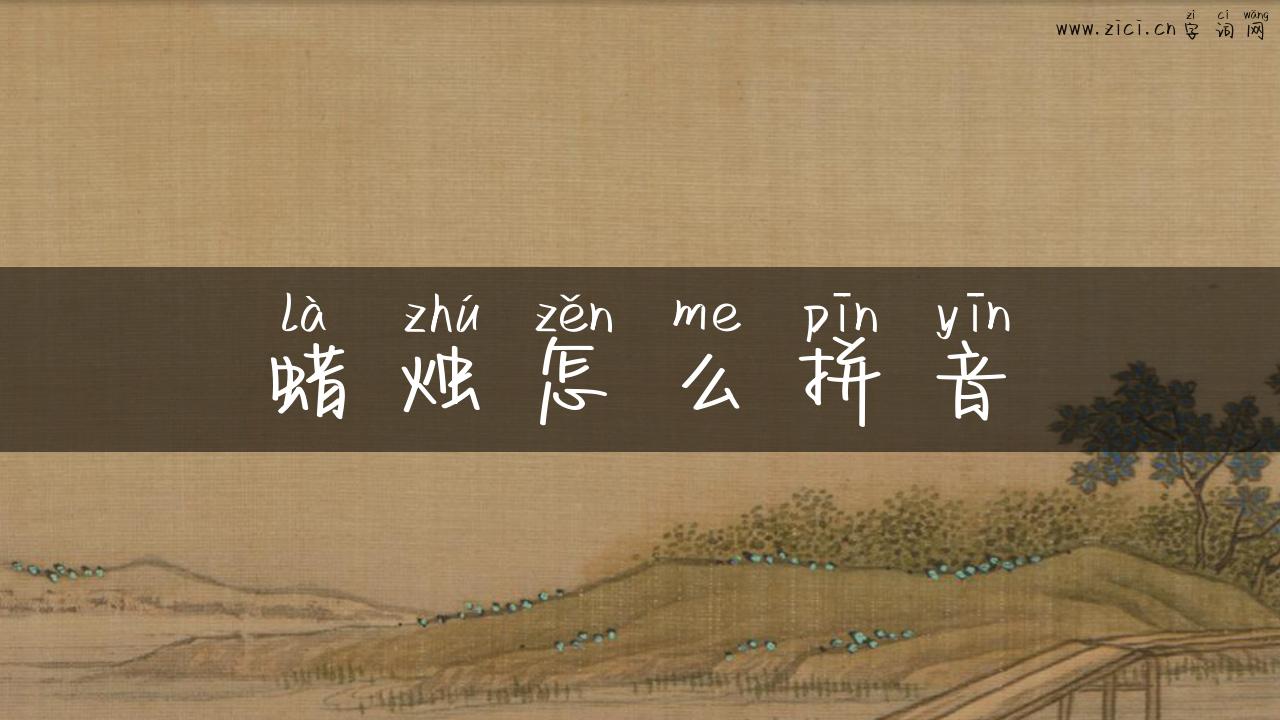 zì cí wǎng
www.zici.cn字词网
là zhú zěn me pīn yīn
蜡烛怎么拼音